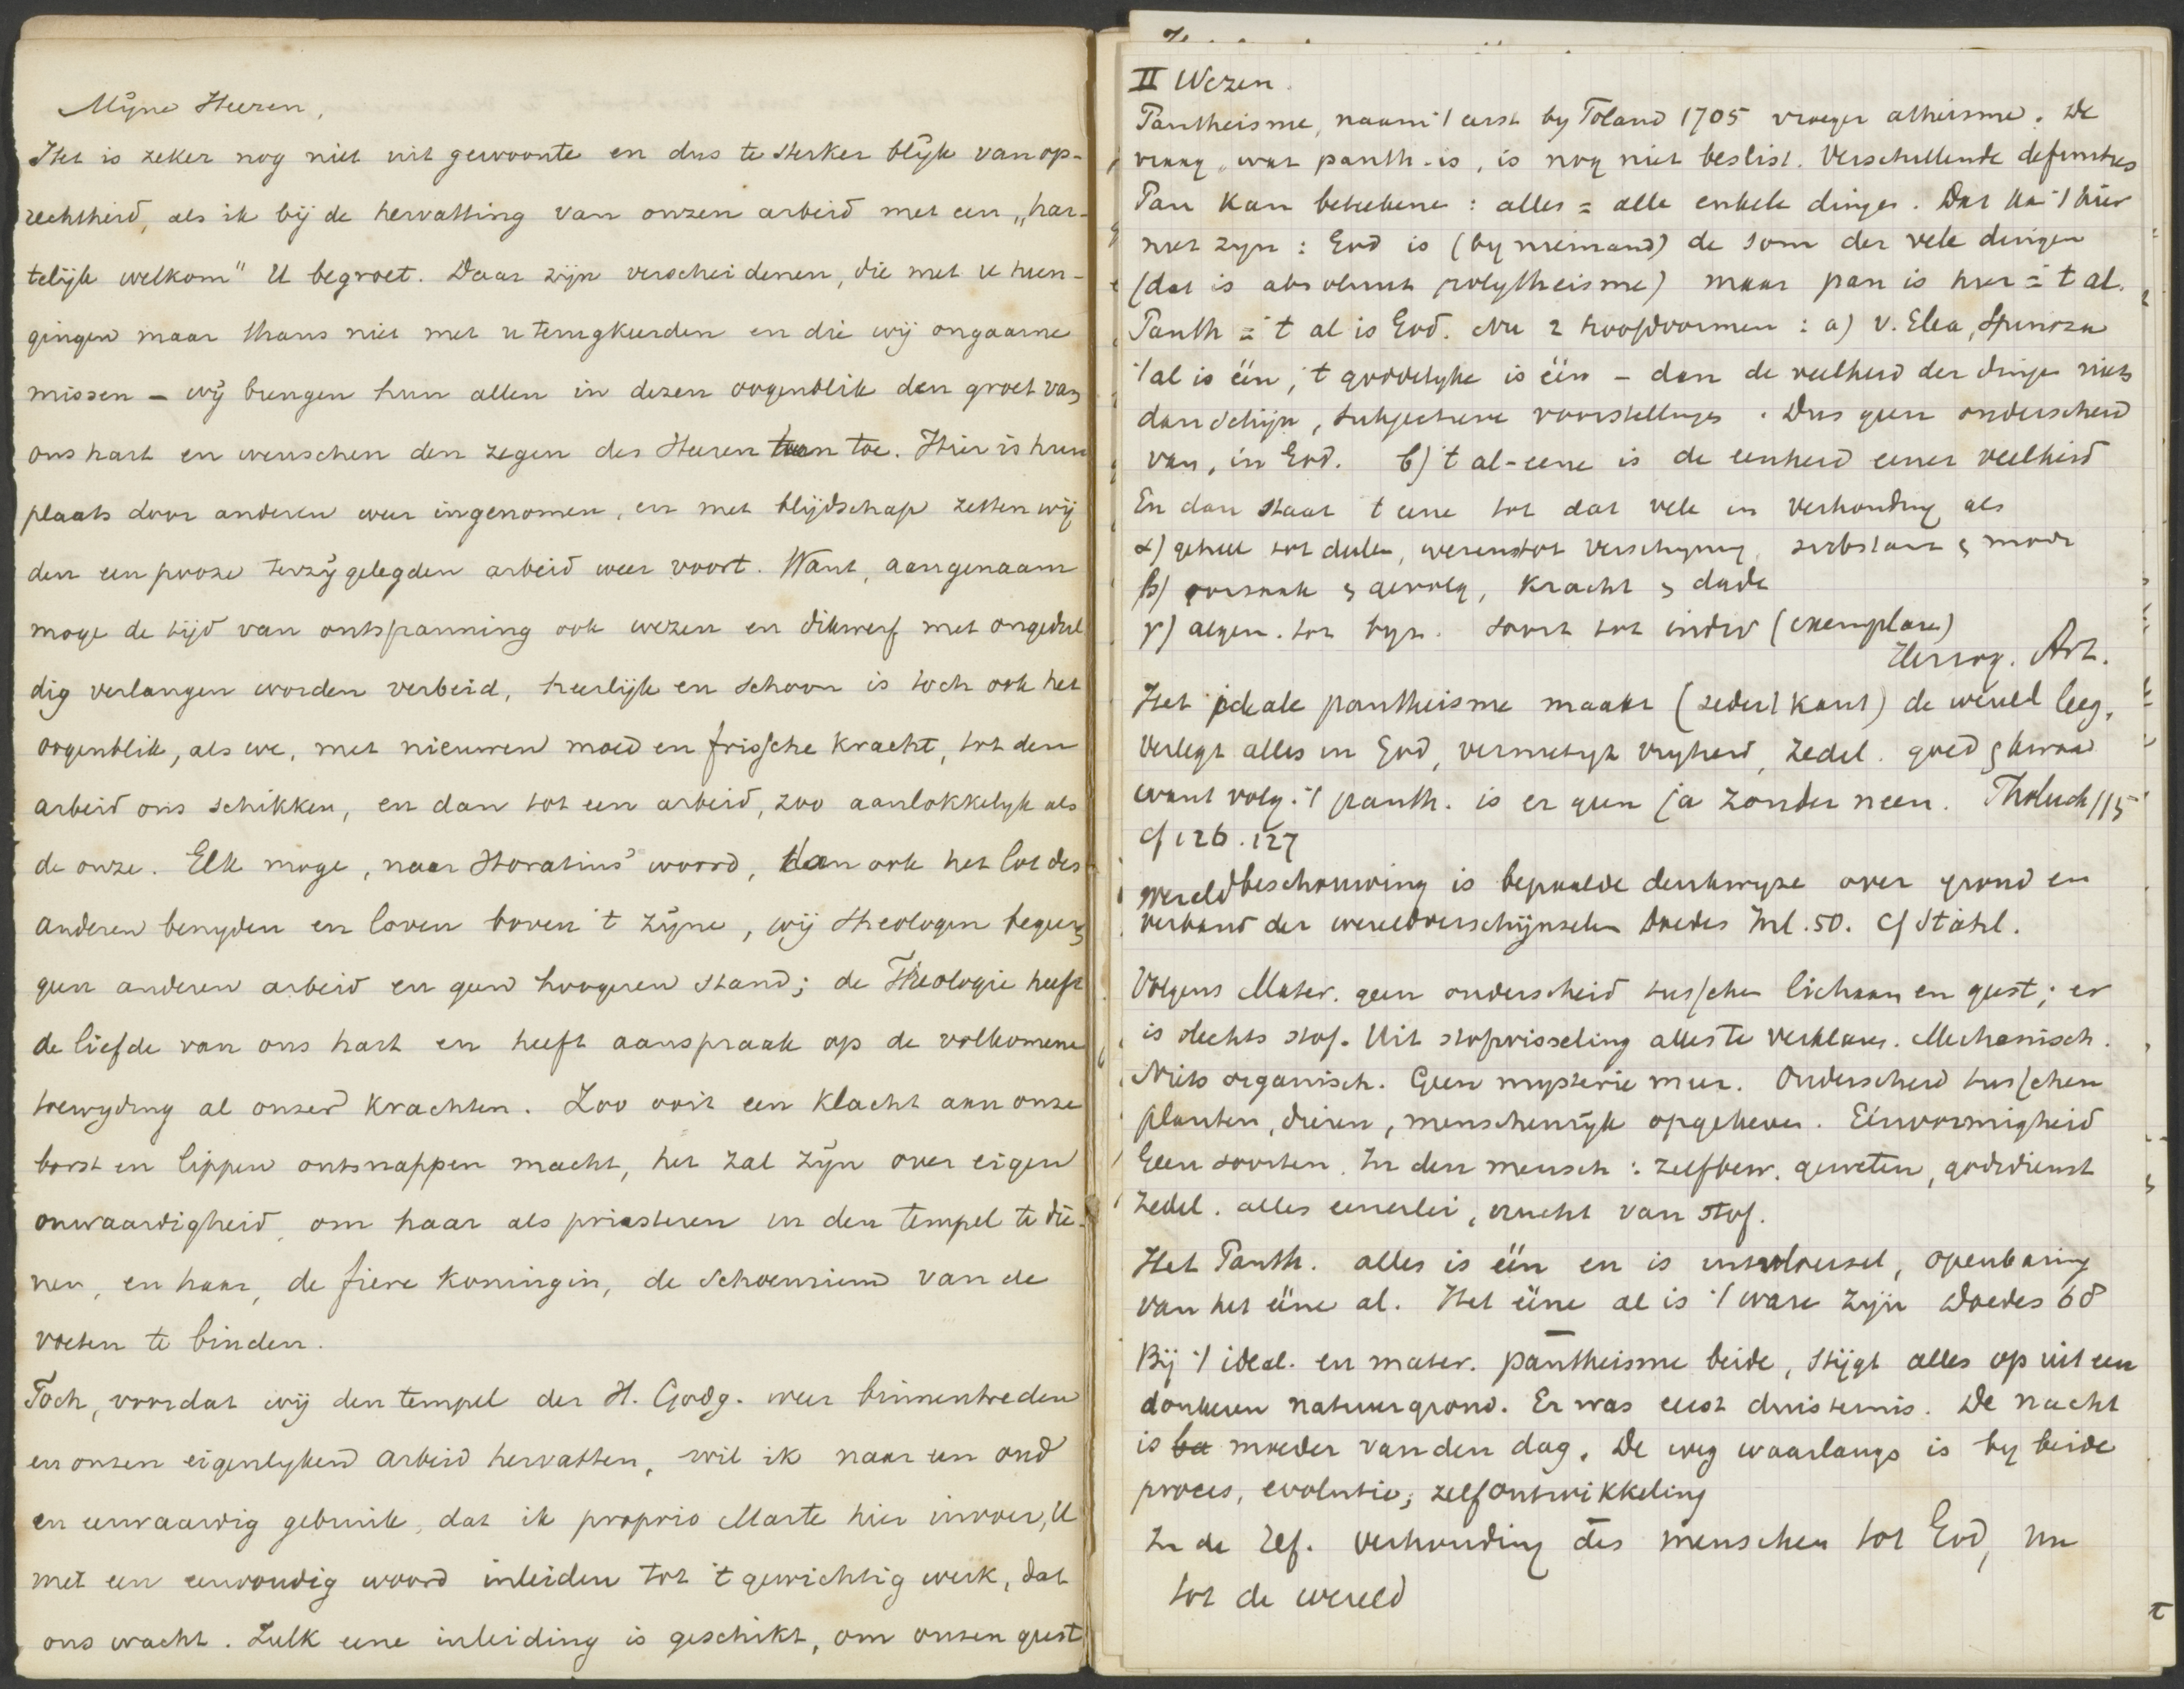 Mijne Heeren,
Het is zeker nog niet uit gewoonte en dus te sterker blijk van op-
rechtheid, als ik bij de hervatting van onzen arbeid met een „har-
telijk welkom" U begroet. Daar zijn verscheidenen, die met u heen-
gingen maar thans niet met u terugkeerden en die wij ongaarne
missen – wij brengen hun allen in dezen oogenblik den groet van
ons hart en wenschen den zegen des Heeren hun toe. Hier is hun
plaats door anderen weer ingenomen, en met blijdschap zetten wij
den een pooze terzijgelegden arbeid weer voort. Want, aangenaam
moge de tijd van ontspanning ook wezen en dikwerf met ongedul
dig verlangen worden verbeid, heerlijk en schoon is toch ook het
oogenblik, als we, met nieuwen moed en frissche kracht, tot den
arbeid ons schikken, en dan tot een arbeid, zoo aanlokkelijk als
de onze. Elk moge, naar Horatius' woord, dan ook het lot des
anderen benijden en loven boven 't zijne, wij theologen begeeren
geen anderen arbeid en geen hoogeren stand; de Theologie heeft
de liefde van ons hart en heeft aanspraak op de volkomene
toewijding al onzer krachten. Zoo ooit een klacht aan onze
borst en lippen ontsnappen mocht, het zal zijn over eigen
onwaardigheid, om haar als priesteren in den tempel te die-
nen, en haar, de fiere koningin, de schoenriem van de
voeten te binden.
Toch, voordat wij den tempel der H. Godg. weer binnentreden
en onzen eigenlijken arbeid hervatten, wil ik naar een oud
en eerwaardig gebruik, dat ik proprio Marte hier invoer, U
met een eenvoudig woord inleiden tot 't gewichtig werk, dat
ons wacht. Zulk eene inleiding is geschikt, om onzen geest
II Wezen.
Pantheisme, naam 't eerst by Toland 1705 vroeger atheisme. De
vraag, wat panth. is, is nog niet beslist. Verschillende definities
Pan kan beteekenen: alles = alle enkele dingen. Dat kan 't hier
niet zyn: God is (by niemand) de som der vele dingen
(dat is absoluut polytheisme) maar pan is hier = 't al.
Panth = 't al is God. Nu 2 hoofdvormen: a) v. Elea, Spinoza
't al is één, 't goddelyke is één – dan de veelheid der dingen niets
dan schijn, subjectieve voorstellingen. Dus geen onderscheid
van, in God. b) 't al-eene is de eenheid eener veelheid
En dan staat 't eene tot dat vele in verhouding als
α) geheel tot deelen, wezen tot verschijning, substant. & modi
β) oorzaak & gevolg, kracht & daad
γ) algem. tot byz. soort tot individ (exemplaren)
Herzog. Art.
Het ideale pantheisme maakt (sedert Kant) de wereld leeg,
verlegt alles in God, vernietigt vryheid, zedel. goed & kwaad
want volg. 't panth. is er geen ja zonder neen. Tholuck 115
cf 126.127
Wereldbeschouwing is bepaalde denkwyze over grond en
verband der wereldverschijnselen Doedes Inl. 50. Cf Stahl.
Volgens Mater. geen onderscheid tusschen lichaam en geest; er
is slechts stof. Uit stofwisseling alles te verklaren. Mechanisch.
Niets organisch. Geen mysterie meer. Onderscheid tusschen
planten, dieren, menschenrijk opgeheven. Eenvormigheid
Geen soorten. In den mensch: zelfbew. geweten, godsdienst
Zedel. alles eenerlei, vrucht van stof.
Het Panth. alles is één en is uitvloeisel, openbaring
van het ééne al. Het ééne al is 't ware zijn Doedes 68
Bij 't ideal. en mater. pantheisme beide, stijgt alles op uit een
donkeren natuurgrond. Er was eerst duisternis. De nacht
is moeder van den dag. De weg waarlangs is by beide
proces, evolutie, zelfontwikkeling
In de verhouding des menschen tot God, nu
tot de wereld